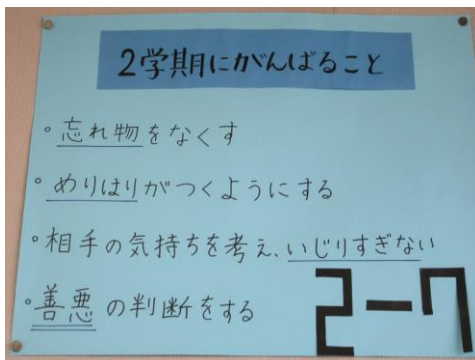 2学期にがんばること
・忘れ物をなくす
・めりはりがつくようにする
・相手の気持ちを考え、いじりすぎない
・善悪の判断をする
2-7